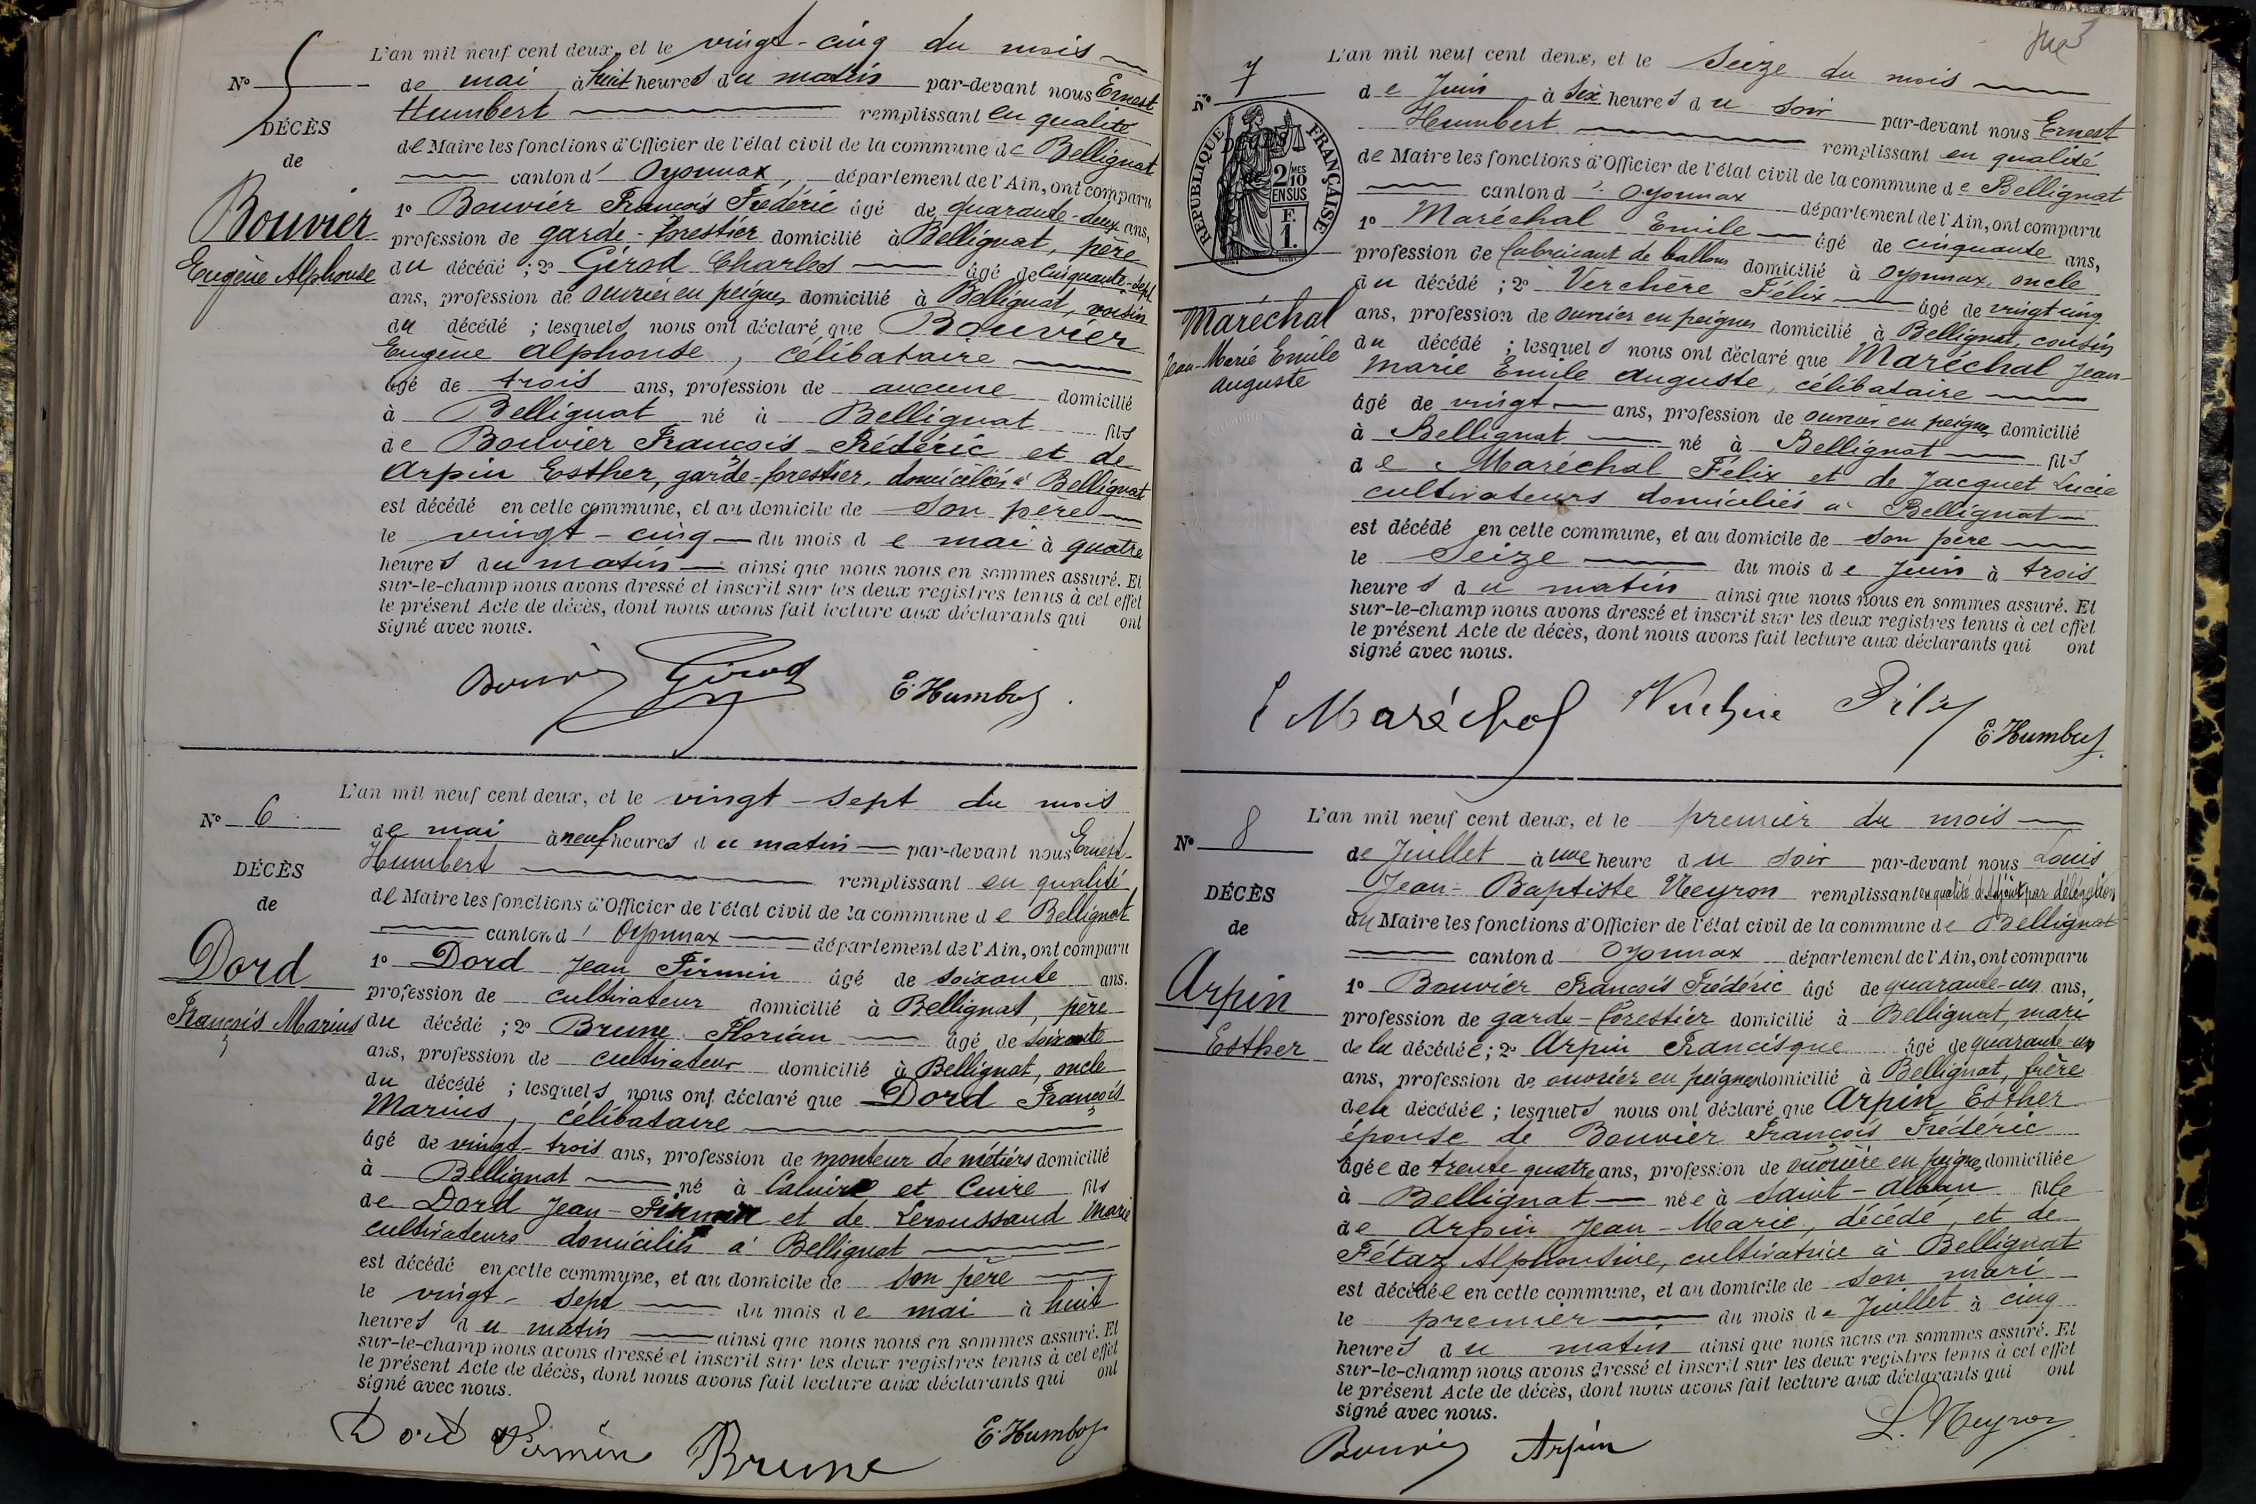 N° 5
DÉCÈS
de
Bouvier
Eugène Alphonse
L'an mil neuf cent deux, et le vingt-cinq du mois
de mai à huit heures du matin par-devant nous Ernest
Humbert remplissant en qualité
de Maire les fonctions d'Officier de l'état civil de la commune de Bellignat
canton d' Oyonnax, département de l'Ain, ont comparu
1° Bouvier François Frédéric âgé de quarante-deux ans,
profession de garde-forestier domicilié à Bellignat, père
du décédé ; 2° Girod Charles âgé de cinquante-sept
ans, profession de ouvrier en peignes domicilié à Bellignat, voisin
du décédé ; lesquels nous ont déclaré que Bouvier
Eugène Alphonse, célibataire
âgé de trois ans, profession de aucune domicilié
à Bellignat né à Bellignat fils
de Bouvier François-Frédéric et de
Arpin Esther, garde-forestier, domiciliés à Bellignat
est décédé en cette commune, et au domicile de son père
le vingt-cinq du mois de mai à quatre
heures du matin ainsi que nous nous en sommes assuré. Et
sur-le-champ nous avons dressé et inscrit sur les deux registres tenus à cet effet
le présent Acte de décès, dont nous avons fait lecture aux déclarants qui ont
signé avec nous.
Bouvier Girod E. Humbert
N° 6
DÉCÈS
de
Dord
François Marius
L'an mil neuf cent deux, et le vingt-sept du mois
de mai à neuf heures du matin par-devant nous Ernest
Humbert remplissant en qualité
de Maire les fonctions d'Officier de l'état civil de la commune de Bellignat
canton d' Oyonnax département de l'Ain, ont comparu
1° Dord Jean Firmin âgé de soixante ans.
profession de cultivateur domicilié à Bellignat, père
du décédé ; 2° Brune Florian âgé de soixante
ans, profession de cultivateur domicilié à Bellignat, oncle
du décédé ; lesquels nous ont déclaré que Dord François
Marius, célibataire
âgé de vingt-trois ans, profession de monteur de métiers domicilié
à Bellignat né à Caluire et Cuire fils
de Dord Jean-Firmin et de Leroussaud Marie
cultivateurs domiciliés à Bellignat
est décédé en cette commune, et au domicile de son père
le vingt-sept du mois de mai à huit
heures du matin ainsi que nous nous en sommes assuré. Et
sur-le-champ nous avons dressé et inscrit sur les deux registres tenus à cet effet
le présent Acte de décès, dont nous avons fait lecture aux déclarants qui ont
signé avec nous.
Dord Firmin Brune E. Humbert
N° 7
RÉPUBLIQUE FRANÇAISE
DÉCÈS
2/10 MES
EN SUS
F.
1.
Maréchal
Jean-Marie Emile
Auguste
L'an mil neuf cent deux, et le Seize du mois
de Juin à six heures du soir par-devant nous Ernest
Humbert remplissant en qualité
de Maire les fonctions d'Officier de l'état civil de la commune de Bellignat
canton d' Oyonnax département de l'Ain, ont comparu
1° Maréchal Emile âgé de cinquante ans,
profession de fabricant de ballons domicilié à Oyonnax, oncle
du décédé ; 2° Verchère Félix âgé de vingt cinq
ans, profession de ouvrier en peignes domicilié à Bellignat, cousin
du décédé ; lesquels nous ont déclaré que Maréchal Jean-
Marie Emile Auguste, célibataire
âgé de vingt ans, profession de ouvrier en peignes domicilié
à Bellignat né à Bellignat fils
de Maréchal Félix et de Jacquet Lucie
cultivateurs domiciliés à Bellignat
est décédé en cette commune, et au domicile de son père
le Seize du mois de Juin à trois
heures du matin ainsi que nous nous en sommes assuré. Et
sur-le-champ nous avons dressé et inscrit sur les deux registres tenus à cet effet
le présent Acte de décès, dont nous avons fait lecture aux déclarants qui ont
signé avec nous.
E Maréchal Verchère Félix E. Humbert
N° 8
DÉCÈS
de
Arpin
Esther
L'an mil neuf cent deux, et le premier du mois
de Juillet à une heure du soir par-devant nous Louis
Jean-Baptiste Neyron remplissant en qualité d'Adjoint par délégation
du Maire les fonctions d'Officier de l'état civil de la commune de Bellignat
canton d Oyonnax département de l'Ain, ont comparu
1° Bouvier François Frédéric âgé de quarante-un ans,
profession de garde-forestier domicilié à Bellignat, mari
de la décédée ; 2° Arpin Francisque âgé de quarante-un
ans, profession de ouvrier en peignes domicilié à Bellignat, frère
de la décédée ; lesquels nous ont déclaré que Arpin Esther
épouse de Bouvier François Frédéric
âgée de trente quatre ans, profession de ouvrière en peignes domiciliée
à Bellignat née à Saint-Alban fille
de Arpin Jean-Marie, décédé, et de
Fétaz Alphonsine, cultivatrice à Bellignat
est décédée en cette commune, et au domicile de son mari
le premier du mois de Juillet à cinq
heures du matin ainsi que nous nous en sommes assuré. Et
sur-le-champ nous avons dressé et inscrit sur les deux registres tenus à cet effet
le présent Acte de décès, dont nous avons fait lecture aux déclarants qui ont
signé avec nous.
Bouvier Arpin L. Neyron